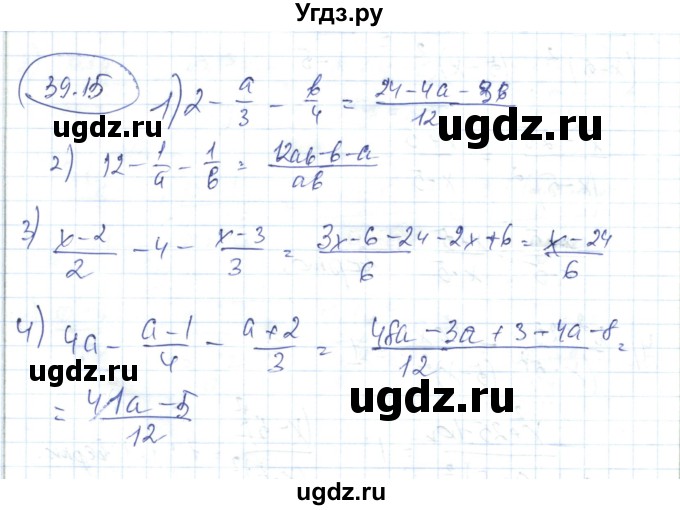 Угдз.ру
39.15
1) 2 - a/3 - b/4 = (24-4a-3b)/12
ugdz.ru ugdz.ru
2) 12 - 1/a - 1/b = (12ab-b-a)/ab
ugdz.ru
3) (x-2)/2 - 4 - (x-3)/3 = (3x-6-24-2x+6)/6 = (x-24)/6
ugdz.ru ugdz.ru
4) 4a - (a-1)/4 - (a+2)/3 = (48a-3a+3-4a-8)/12 =
ugdz.ru ugdz.ru
= (41a-5)/12
ugdz.ru
ugdz.ru